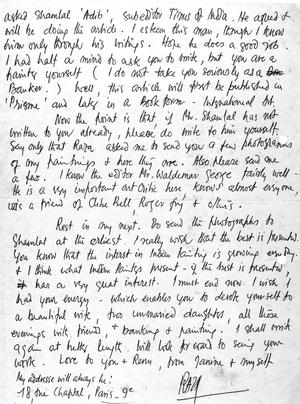 asked Shamlal 'Adib', sub editor Times of India. He agreed &
will be doing the article. I esteem this man, though I know
him only through his writings. Hope he does a good job.
I had half a mind to ask you to write, but you are a
painter yourself (I do not take you seriously as a
Banker.) Well, this article will first be published in
'Prisme' and later in a book form - International Art.
Now the point is that if Mr. Shamlal has not
written to you already, please do write to him yourself.
Say only that Raza asked me to send you a few photographs
of my paintings & here they are. Also please send me
a few. I know the editor Mr. Waldemar George fairly well -
He is a very important art critic here knows almost everyone,
was a friend of Clive Bell, Roger Fry & others.
Rest in my next. Do send the photographs to
Shamlal at the earliest. I really wish that the best is presented.
You know that the interest in Indian Painting is growing everyday.
& I think what Indian Painters present - if the best is presented,
it has a very great interest. I must end now. I wish I
had your energy - which enables you to devote yourself to
a beautiful wife, two unmarried daughters, all those
evenings with friends, & banking & painting. I shall write
again at better length. Will look forward to seeing your
work. Love to you & Renu, from Janine & myself
My address will always be:
18 rue Chaptal, Paris - 9e
RAZA